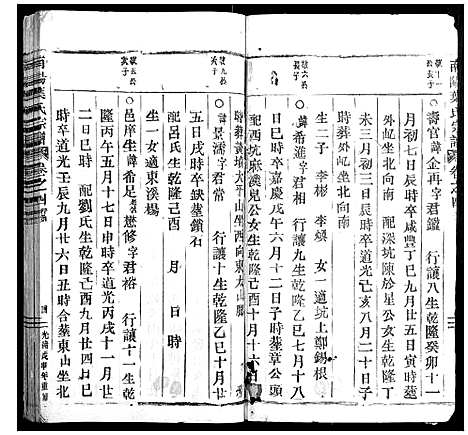 南陽葉氏宗譜
壽官諱金再字君鑑 行讓八生乾隆癸卯十一
月初七日辰時卒咸豐丁巳九月廿五日寅時葬
外屺坐北向南 配深坑陳於星公女生乾隆丁
未三月初三日辰時卒道光己亥八月二十日子
時葬外屺坐北向南
生二子 李彬 李煐 女一適坑上鄭錫根
諱希進字君相 行讓九生乾隆乙巳七月十八
日巳時卒嘉慶戊午六月十二日子時葬章公頭
配西坑麻漢兒公女生乾隆己酉十月十六
時葬黃墳大平山坐西向東大山脚
諱景濡字君常 行讓十生乾隆乙巳十月廿
五日戌時卒缺葬鑽石
配呂氏生乾隆己酉 月 日 時
生一女適東溪楊
邑庠生諱希足懋修字君裕 行讓十一生乾
隆丙午五月十七日申時卒道光丙戌十一月廿
二日巳時 配劉氏生乾隆己酉九月廿四日巳
時卒道光壬辰九月廿六日丑時合葬東山坐北
南陽葉氏宗譜 卷之四
光緒戊申年重修